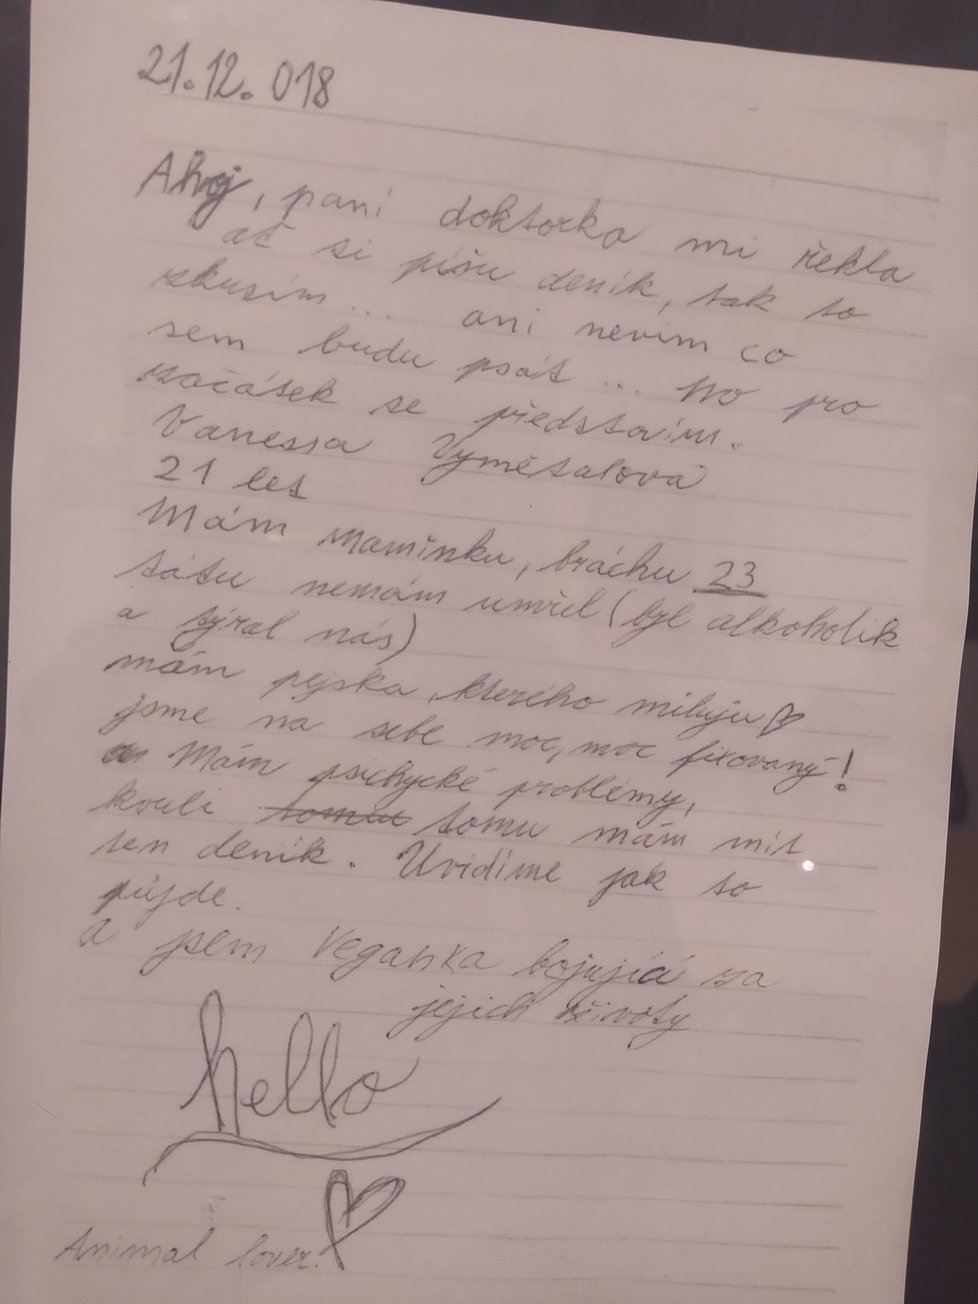 21.12.018
Ahoj, paní doktorka mi řekla
ať si píšu deník, tak to
zkusím... ani nevím co
sem budu psát... No pro
začátek se představím.
Vanessa Vymětalová
21 let
Mám maminku, bráchu 23
tátu nemám umřel (byl alkoholik
a týral nás)
mám pejska, kterého miluju ♡
jsme na sebe moc, moc fixovaný!
Mám psichycké problémy,
kvuli tomu tomu mám mít
ten deník. Uvidíme jak to
půjde.
a jsem Veganka bojujíá za
jejich životy
hello
Animal lover.